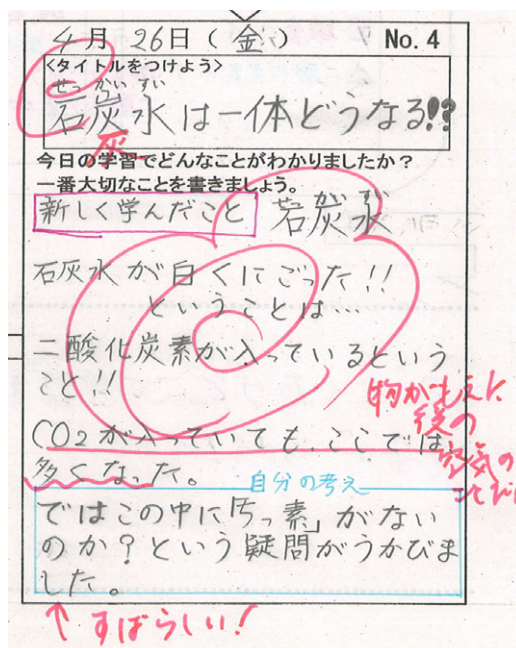 4月26日(金) No.4
<タイトルをつけよう>
せっ かい すい
石炭水は一体どうなる!?
灰
今日の学習でどんなことがわかりましたか?
一番大切なことを書きましょう。
新しく学んだこと 石炭水
石灰水が白くにごった!!
ということは…
二酸化炭素が入っているという
こと!!
物がもえた
後の
空気の
ことだ
CO2が入っていても、ここでは
多くなった。
自分の考え
ではこの中に「ちっ素」がない
のか?という疑問がうかびま
した。
↑すばらしい!